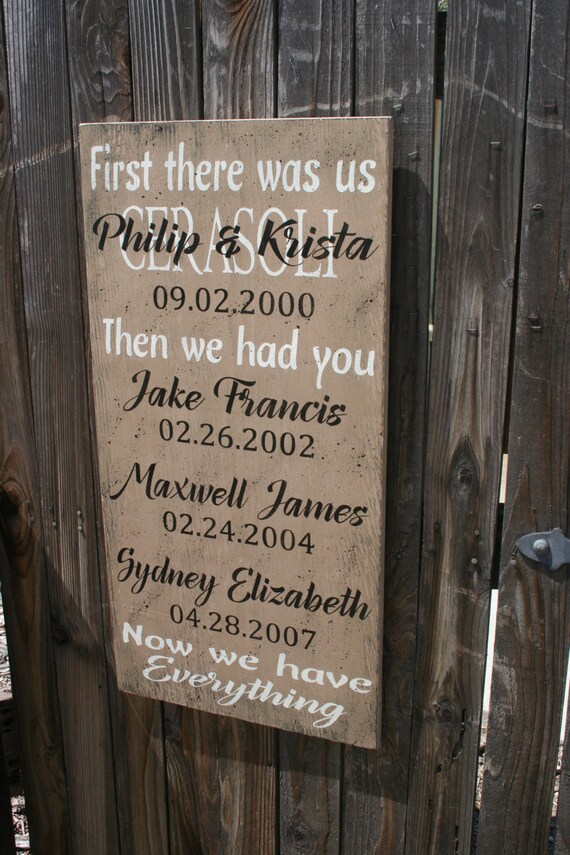 First there was us
CERASOLI
Philip & Krista
09.02.2000
Then we had you
Jake Francis
02.26.2002
Maxwell James
02.24.2004
Sydney Elizabeth
04.28.2007
Now we have
Everything